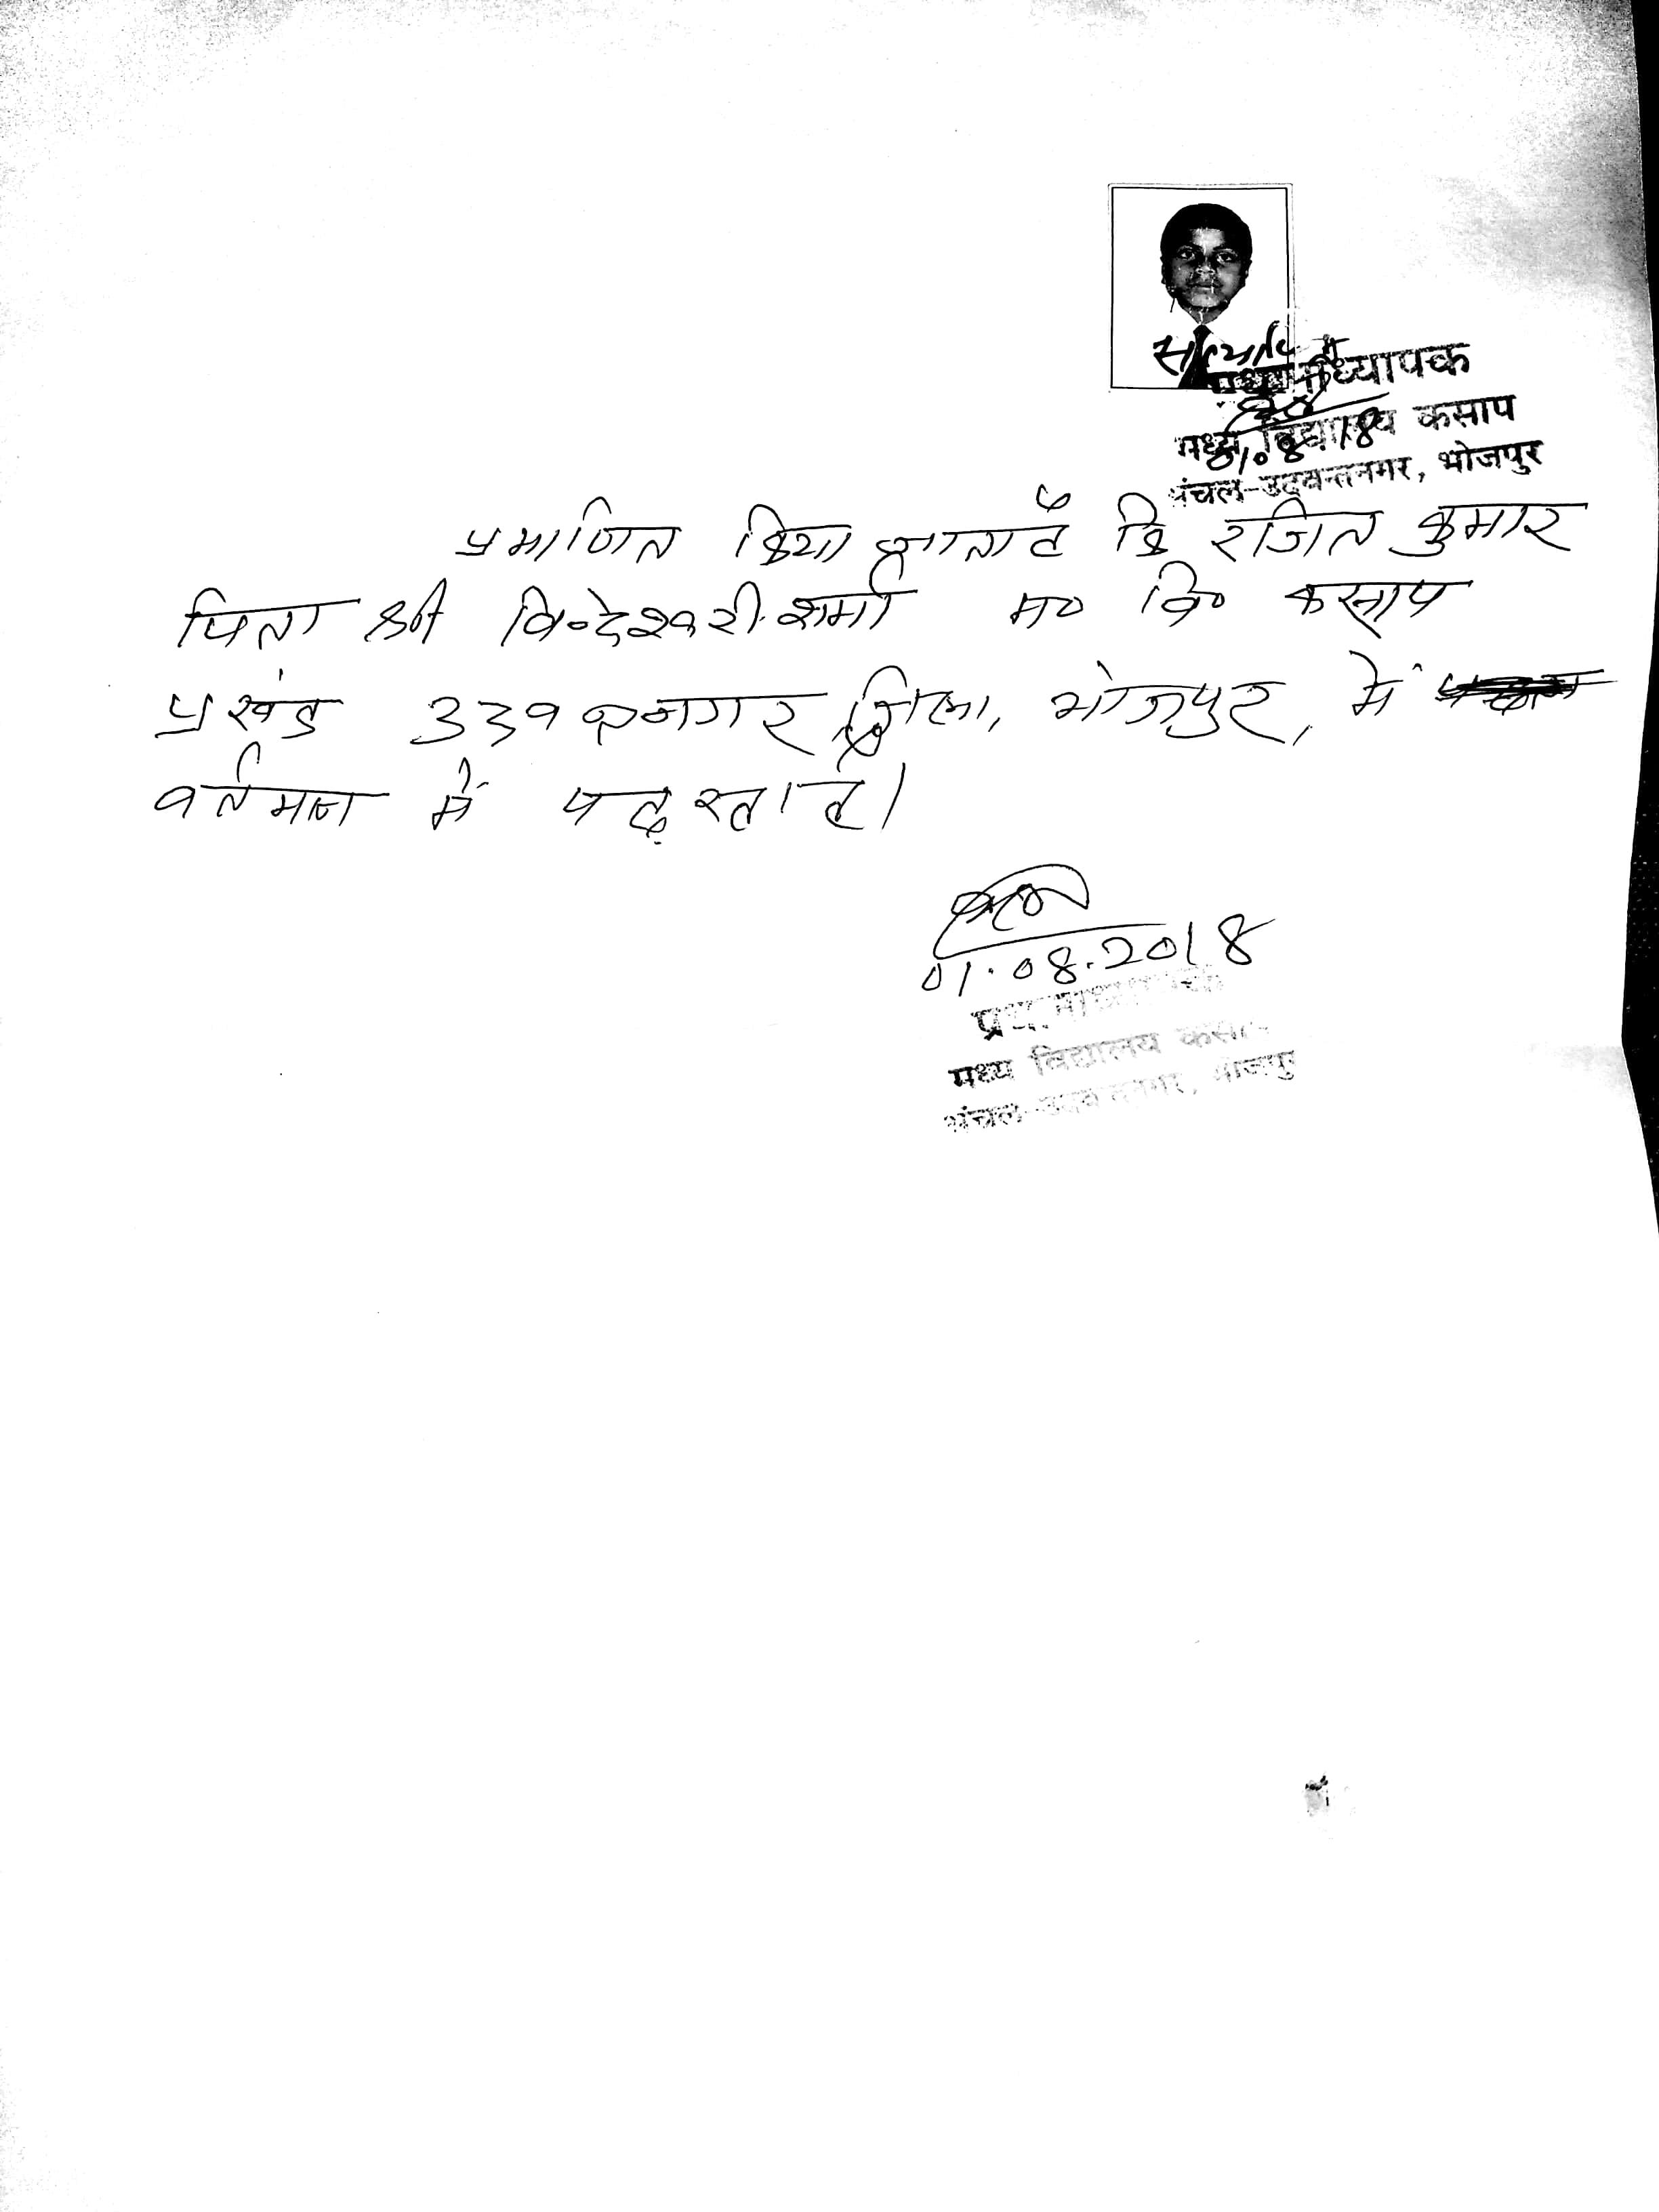 सत्यापित
प्रधानाध्यापक
मध्य विद्यालय कसाप
01.08.18
अंचल-उदवन्तनगर, भोजपुर
प्रमाणित किया जाता है कि रंजित कुमार
पिता श्री विन्देश्वरी शर्मा म० वि० कसाप
प्रखंड उदवन्तनगर जिला, भोजपुर, में
वर्तमान में पढ़ रहा है।
01.08.2018
मध्य विद्यालय कसाप
अंचल-उदवन्तनगर, भोजपुर